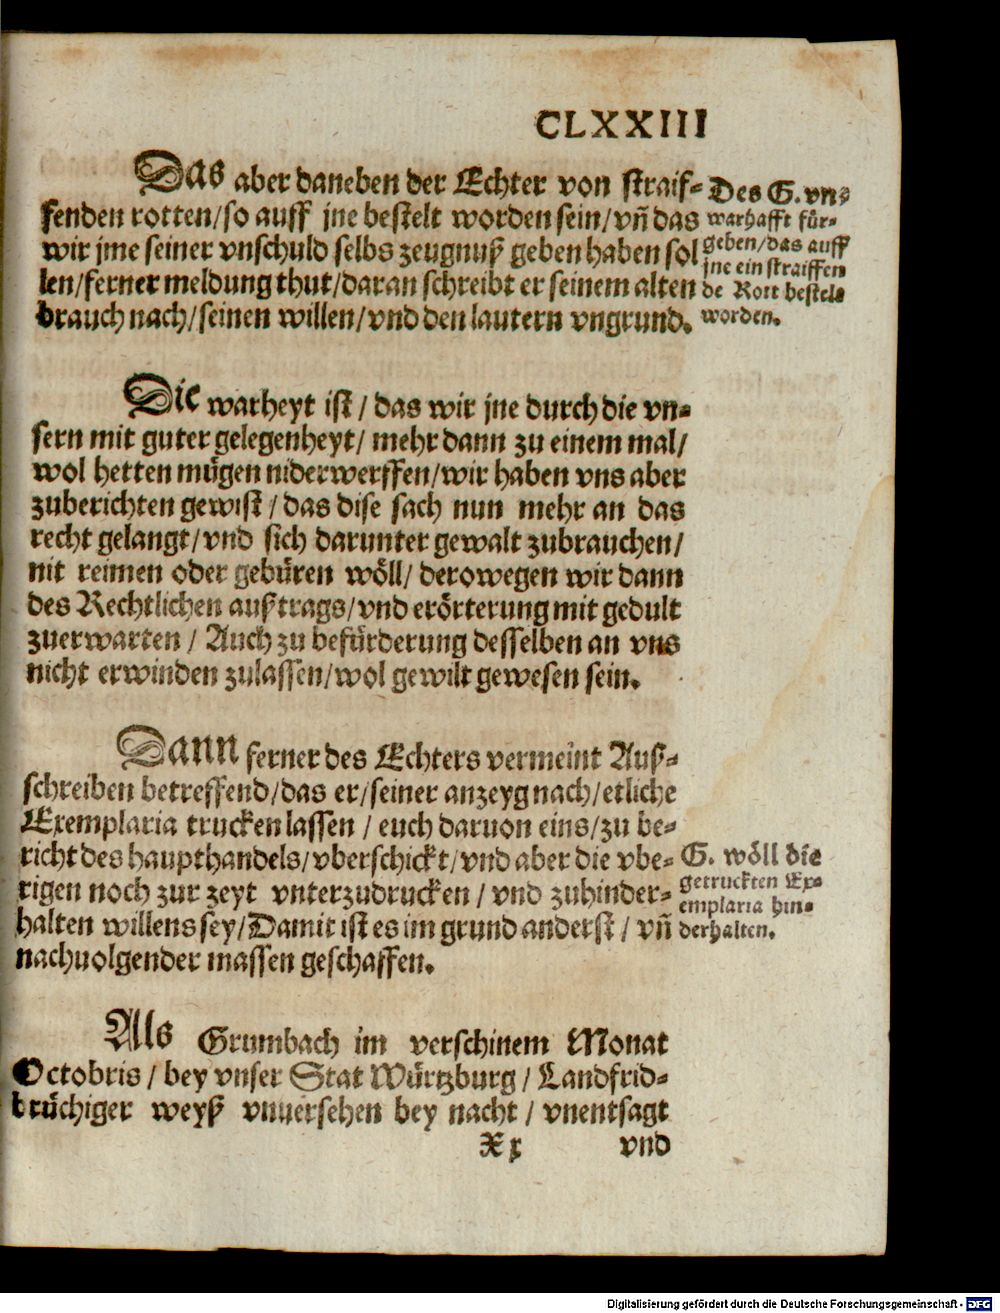 CLXXIII
Das aber daneben der Echter von straif-
fenden rotten/so auff jne bestelt worden sein/vñ das
wir jme seiner vnschuld selbs zeugnuß geben haben sol
len/ferner meldung thut/daran schreibt er seinem alten
brauch nach/seinen willen/vnd den lautern vngrund.
Des G. vn-
warhafft für-
geben/das auff
jne ein straiffen
de Rott bestelt
worden.
Die warheyt ist / das wir jne durch die vn-
sern mit guter gelegenheyt/ mehr dann zu einem mal/
wol hetten mügen niderwerffen/wir haben vns aber
zuberichten gewist / das dise sach nun mehr an das
recht gelangt/vnd sich darunter gewalt zubrauchen/
nit reimen oder gebüren wöll/ derowegen wir dann
des Rechtlichen außtrags/vnd erörterung mit gedult
zuerwarten / Auch zu befürderung desselben an vns
nicht erwinden zulassen/wol gewilt gewesen sein.
Dann ferner des Echters vermeint Auß-
schreiben betreffend/das er/seiner anzeyg nach/etliche
Exemplaria trucken lassen / euch daruon eins/zu be-
richt des haupthandels/vberschickt/vnd aber die vbe-
rigen noch zur zeyt vnterzudrucken / vnd zuhinder-
halten willens sey/Damit ist es im grund anderst / vñ
nachuolgender massen geschaffen.
G. wöll die
getruckten Ex-
emplaria hin-
derhalten.
Als Grumbach im verschinem Monat
Octobris / bey vnser Stat Würtzburg / Landfrid-
brüchiger weyß vnuersehen bey nacht / vnentsagt
Xx vnd
Digitalisierung gefördert durch die Deutsche Forschungsgemeinschaft - DFG